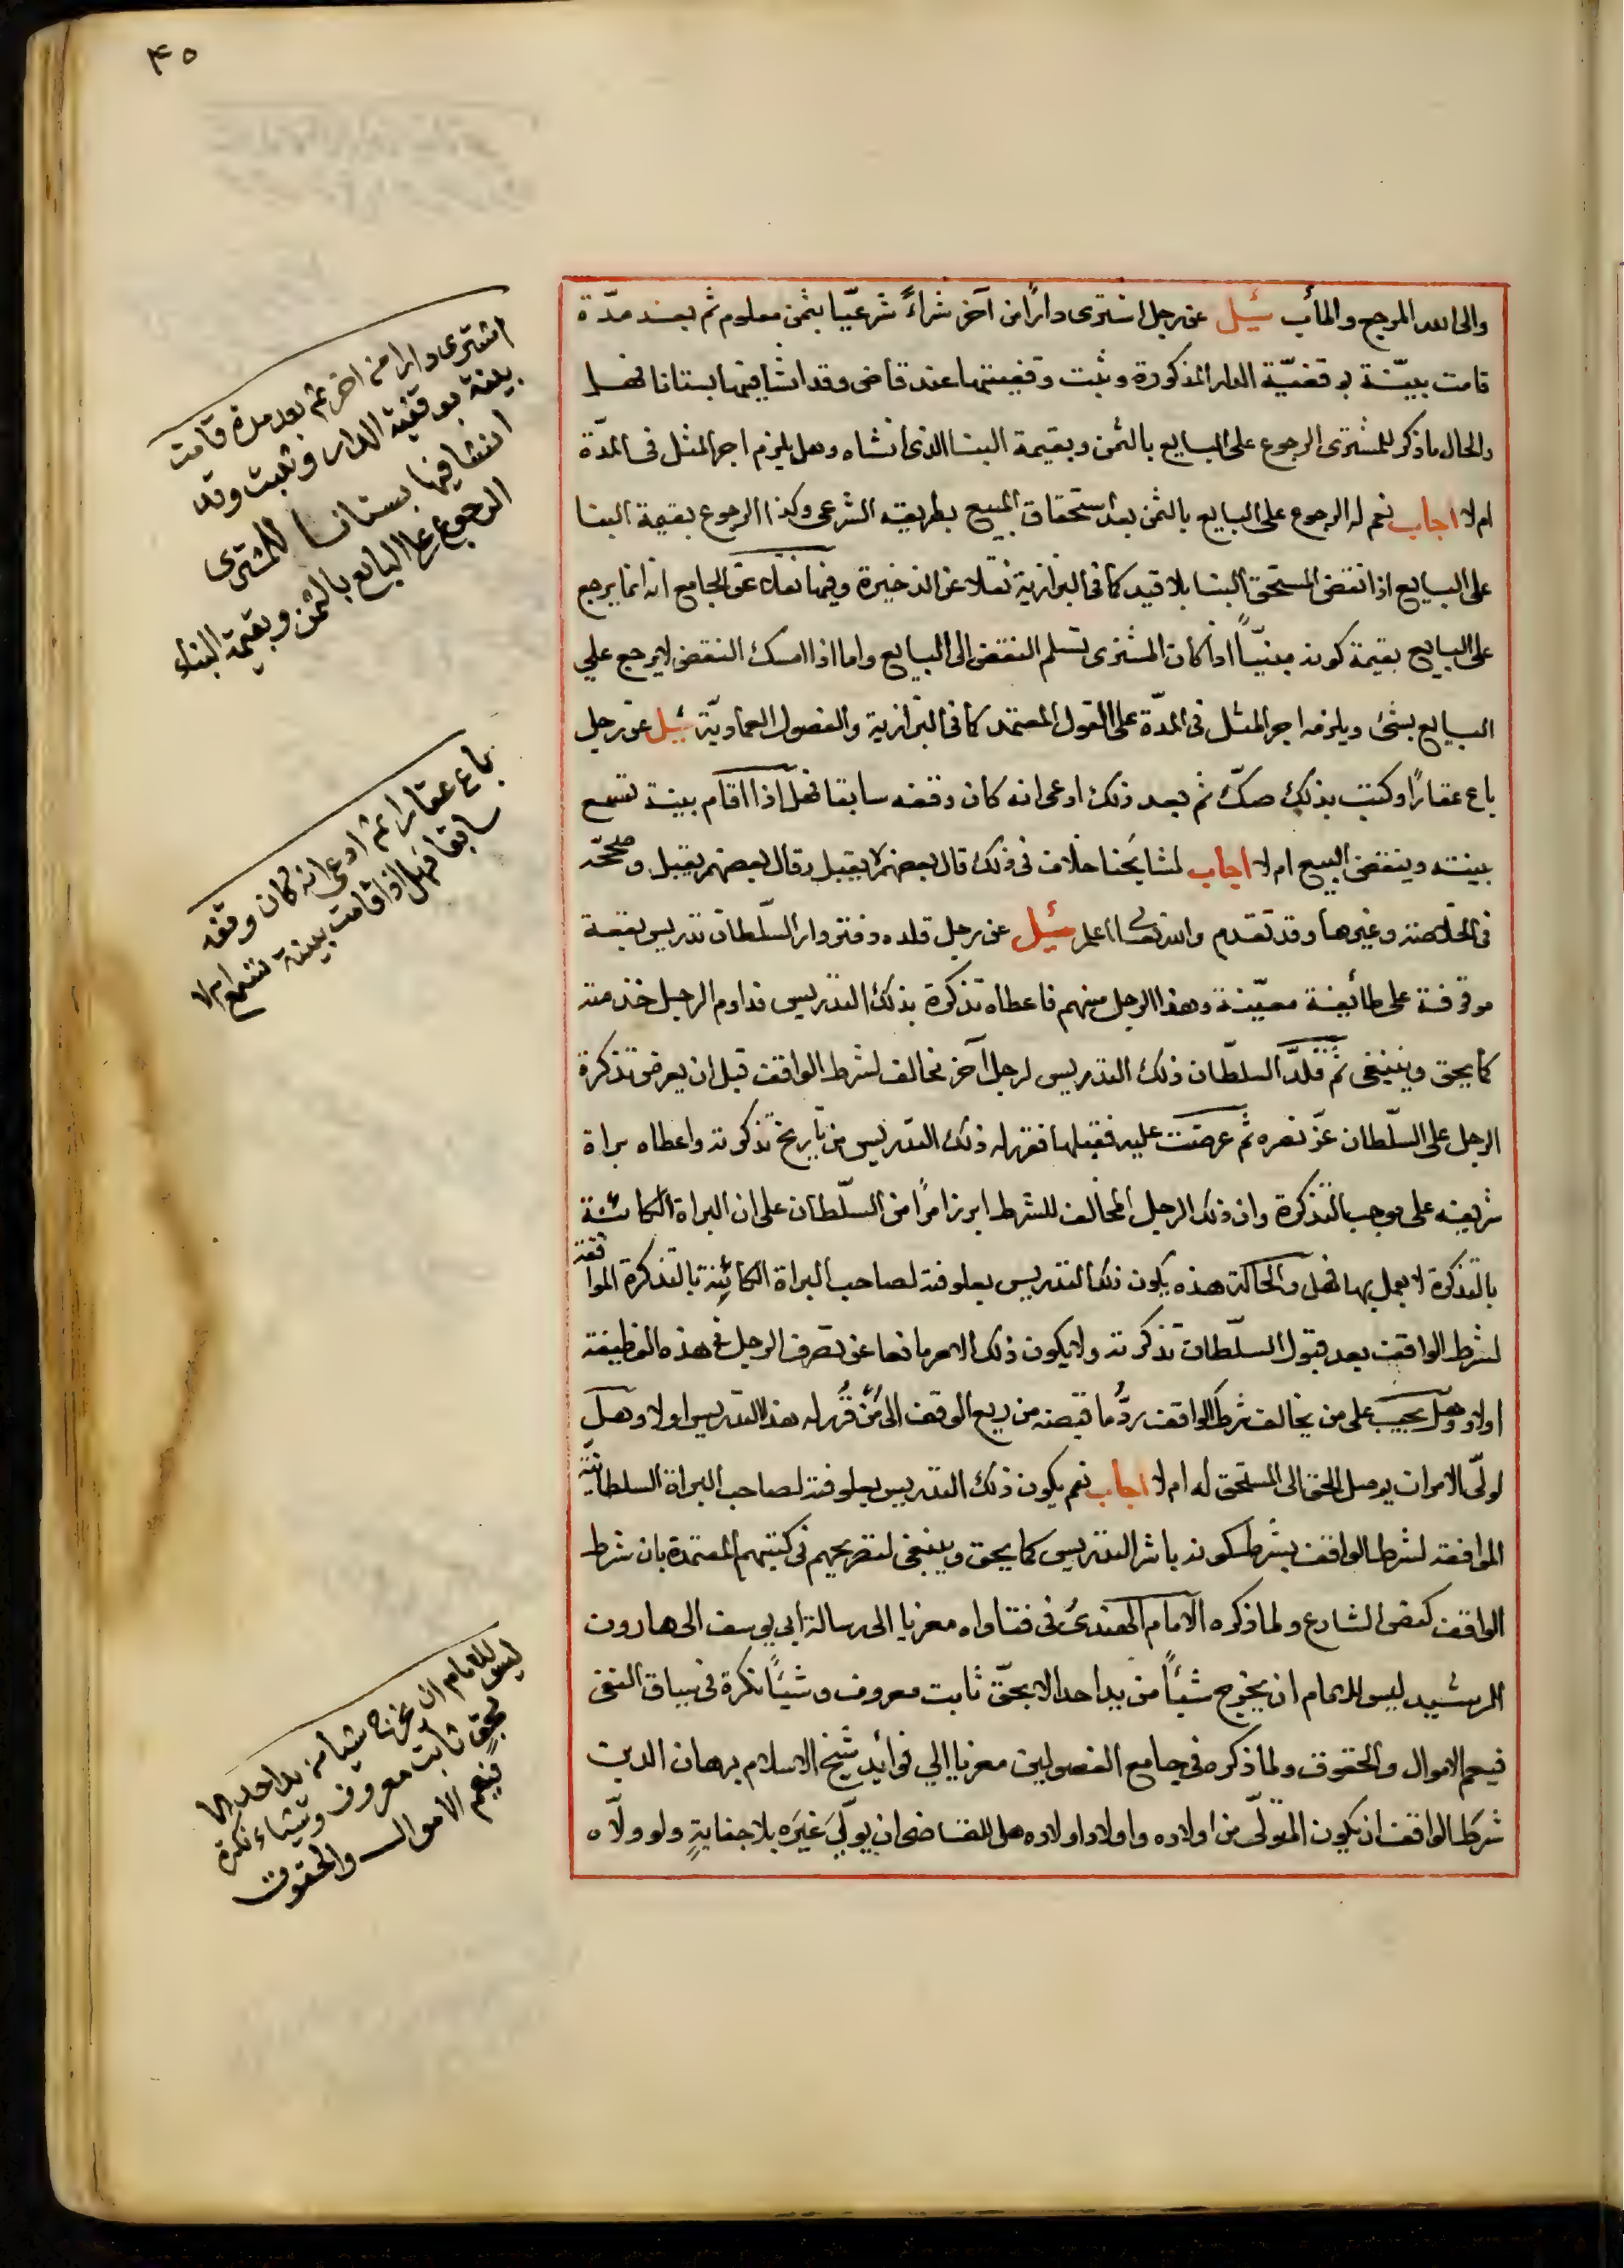 ۴۵
والى الله المرجع والمأب سُئِل عن رجل اشترى دارًا من آخر شراءً شرعيّا بثمن معلوم ثم بعد مدّة
قامت بيّنة بوقفيّة الدار المذكورة وثبت وقفيتها عند قاضى وقد انشا فيها بستانا فهل
والحال ما ذكر للمشترى الرجوع على البايع بالثمن وبقيمة البنا الذى انشاه وهل يلزم اجر المثل فى المدّة
ام لا اجاب نعم له الرجوع على البايع بالثمن بعد استحقاق المبيع بطريقه الشرعى وكذا الرجوع بقيمة البنا
على البايع اذا نقض المستحق البنا بلا قيد كما فى البزازية نقلا عن الذخيرة وفيها نقلا عن الجامع انه انما يرجع
على البايع بقيمة كونه مبنيّاً اذا كان المشترى تسلم النقض الى البايع واما اذا امسك النقض لا يرجع على
البايع بشئ ويلزمه اجر المثل فى المدّة على القول المعتمد كما فى البزازية والفصول العماديّة سُئِل عن رجل
باع عقارًا وكتب بذلك صكّ ثم بعد ذلك ادعى انه كان وقفه سابقا فهل اذا اقام بينة تسمع
بينته وينقض البيع ام لا اجاب لمشايخنا خلاف فى ذلك قال بعضهم لا يقبل وقال بعضهم يقبل وصححه
فى الخلاصة وغيرها وقد تقدم والله تعالى اعلم سُئِل عن رجل قلده دفتردار السّلطان تدريس بقعة
موقوفة على طائفة معيّنة وهذا الرجل منهم فاعطاه تذكرة بذلك التدريس فداوم الرجل خدمته
كما يحق وينبغى ثم قلّد السلطان ذلك التدريس لرجل آخر مخالف لشرط الواقف قبل ان يعرض تذكرة
الرجل على السلّطان عزّ نصره ثم عرضت عليه فقبلها فقرر له ذلك التدريس من تأريخ تذكرته واعطاه براة
شريفه على موجب التذكرة وان ذلك الرجل المخالف للشرط ابرز امرًا من السلّطان على ان البراة الكائنة
بالتذكرة لا يعمل بها فهل والحالة هذه يكون ذلك التدريس بعلوفته لصاحب البراة الكائنة بالتذكرة الموافقة
لشرط الواقف بعد قبول السلّطان تذكرته ولا يكون ذلك الامر مانعا عن تصرف الرجل فى هذه الوظيفة
اولا وهل يجب على من يخالف شرط الواقف ردُّ ما قبضه من ريع الوقف الى من قُرر له هذا التدريس اولا وهل
لولّى الامر ان يوصل الحق الى المستحق له ام لا اجاب نعم يكون ذلك التدريس بعلوفته لصاحب البراة السلطانية
الموافقة لشرط الواقف بشرط كونه باشر التدريس كما يحق وينبغى لتصريحهم فى كتبهم المعتمدة بان شرط
الواقف كنص الشارع ولما ذكره الامام الحصندىُ فى فتاواه معزيا الى رسالة ابى يوسف الى هارون
الرشيد ليس للامام ان يخرج شيئاً من يد احد الا بحقّ ثابت معروف وشيئاً نكرة فى سياق النفى
فيعم الاموال والحقوق ولما ذكره فى جامع الفصولين معزيا الى فوائد شيخ الاسلام برهان الدين
شرط الواقف ان يكون المتولّى من اولاده واولاد اولاده هل للقاضى ان يولّىَ غيَره بلا جنايةٍ ولو ولاّه
اشترى دارا من اخر ثم بعد مدة قامت
بينة بوقفية الدار وثبت وقد
انشا فيها بستانا للمشترى
الرجوع على البايع بالثمن وبقيمة البناء
باع عقارا ثم ادعى انه كان وقفه
سابقا فهل اذا قامت بينة تسمع ام لا
ليس للامام ان يخرج شيأ من يد احد الا
بحق ثابت معروف وشياء نكرة
فيعم الاموال والحقوق